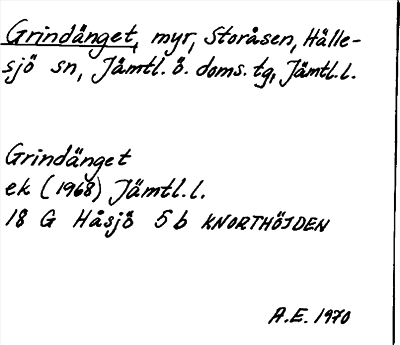 Grindänget, myr, Storåsen, Hålle-
sjö sn, Jämtl. ö. doms. tg, Jämtl. l.
Grindänget
ek (1968) Jämtl. l.
18 G Håsjö 5 b KNORTHÖJDEN
A.E. 1970